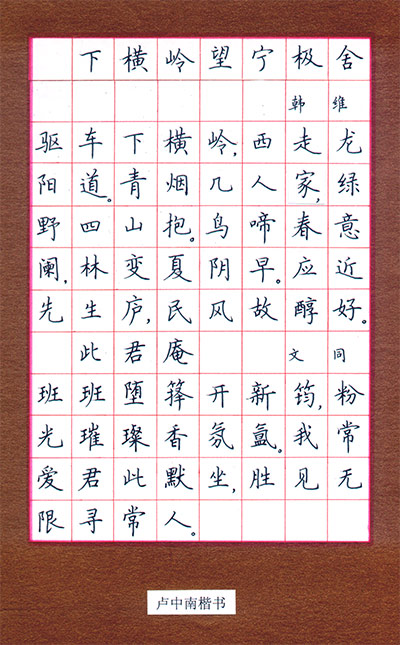 下横岭望宁极舍
韩维
驱车下横岭,西走龙
阳道。青烟几人家,绿
野四山抱。鸟啼春意
阑,林变夏阴早。应近
先生庐,民风故醇好。
此君庵 文同
班班堕箨开新筠,粉
光璀璨香氛氲。我常
爱君此默坐,胜见无
限寻常人。
卢中南楷书